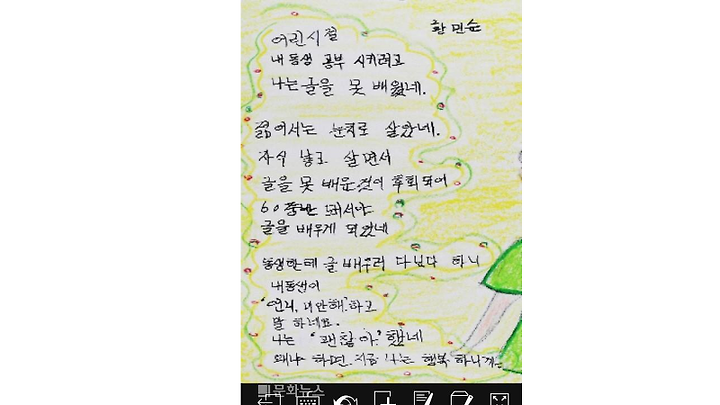 황 민순
어린시절
내 동생 공부 시키려고
나는 글을 못 배웠네.
젊어서는 눈치로 살았네.
자식 낳고 살면서
글을 못 배운것이 후회되어
60 되서야
글을 배우게 되었네
동생한테 글 배우러 다닌다 하니
내동생이
'언니, 미안해.' 하고
말 하네요.
나는 '괜찮아' 했네
왜냐 하면. 지금 나는 행복 하니까.
문화뉴스